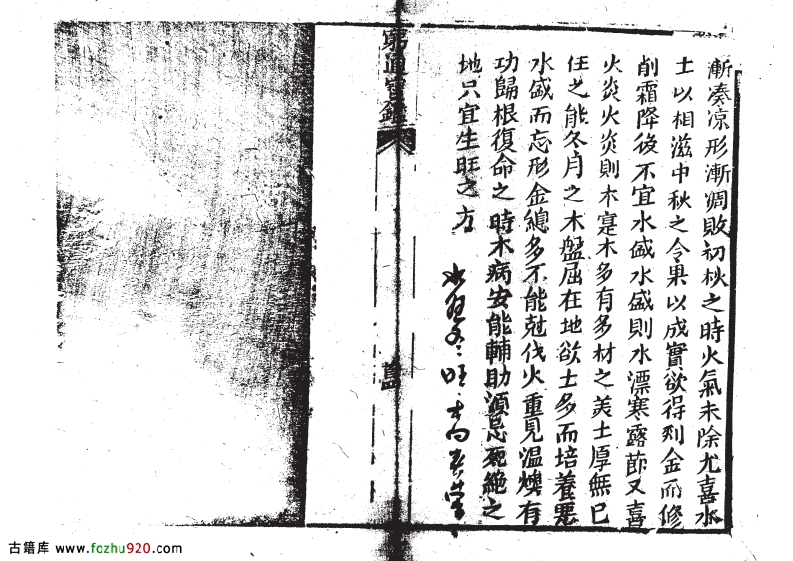 漸凑凉形漸凋敗初秋之時火氣未除尤喜水
土以相滋中秋之令果以成實欲得剛金而修
削霜降後不宜水盛水盛則水漂寒露節又喜
火炎火炎則木寔木多有多材之美土厚無己
任之能冬月之木盤屈在地欲土多而培養惡
水盛而忘形金總多不能尅伐火重見温燠有
功歸根復命之時木病安能輔助須忌死絶之
地只宜生旺之方
窮通寳鑑
古籍库 www.fozhu920.com